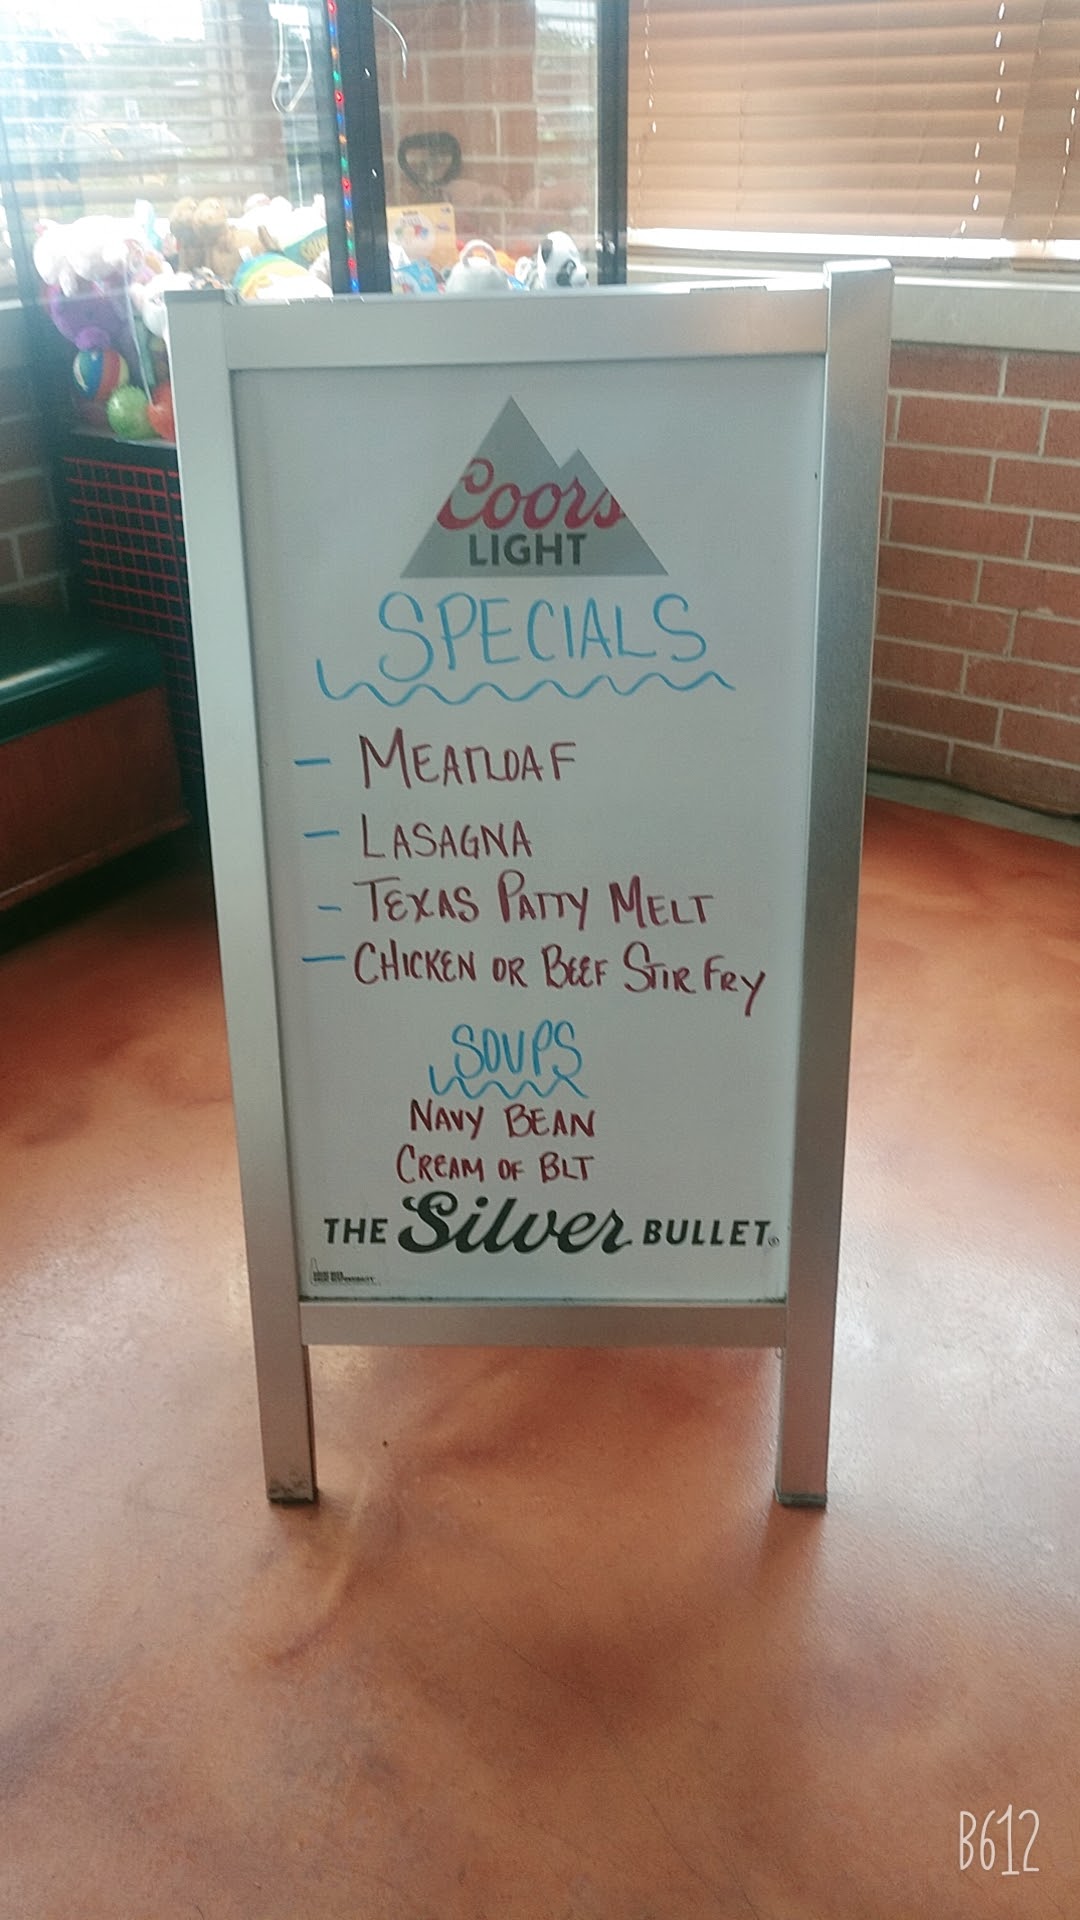 Coors
LIGHT
SPECIALS
- MEATLOAF
- LASAGNA
- TEXAS PATTY MELT
- CHICKEN OR BEEF STIR FRY
SOUPS
NAVY BEAN
CREAM OF BLT
THE Silver BULLET®
B612